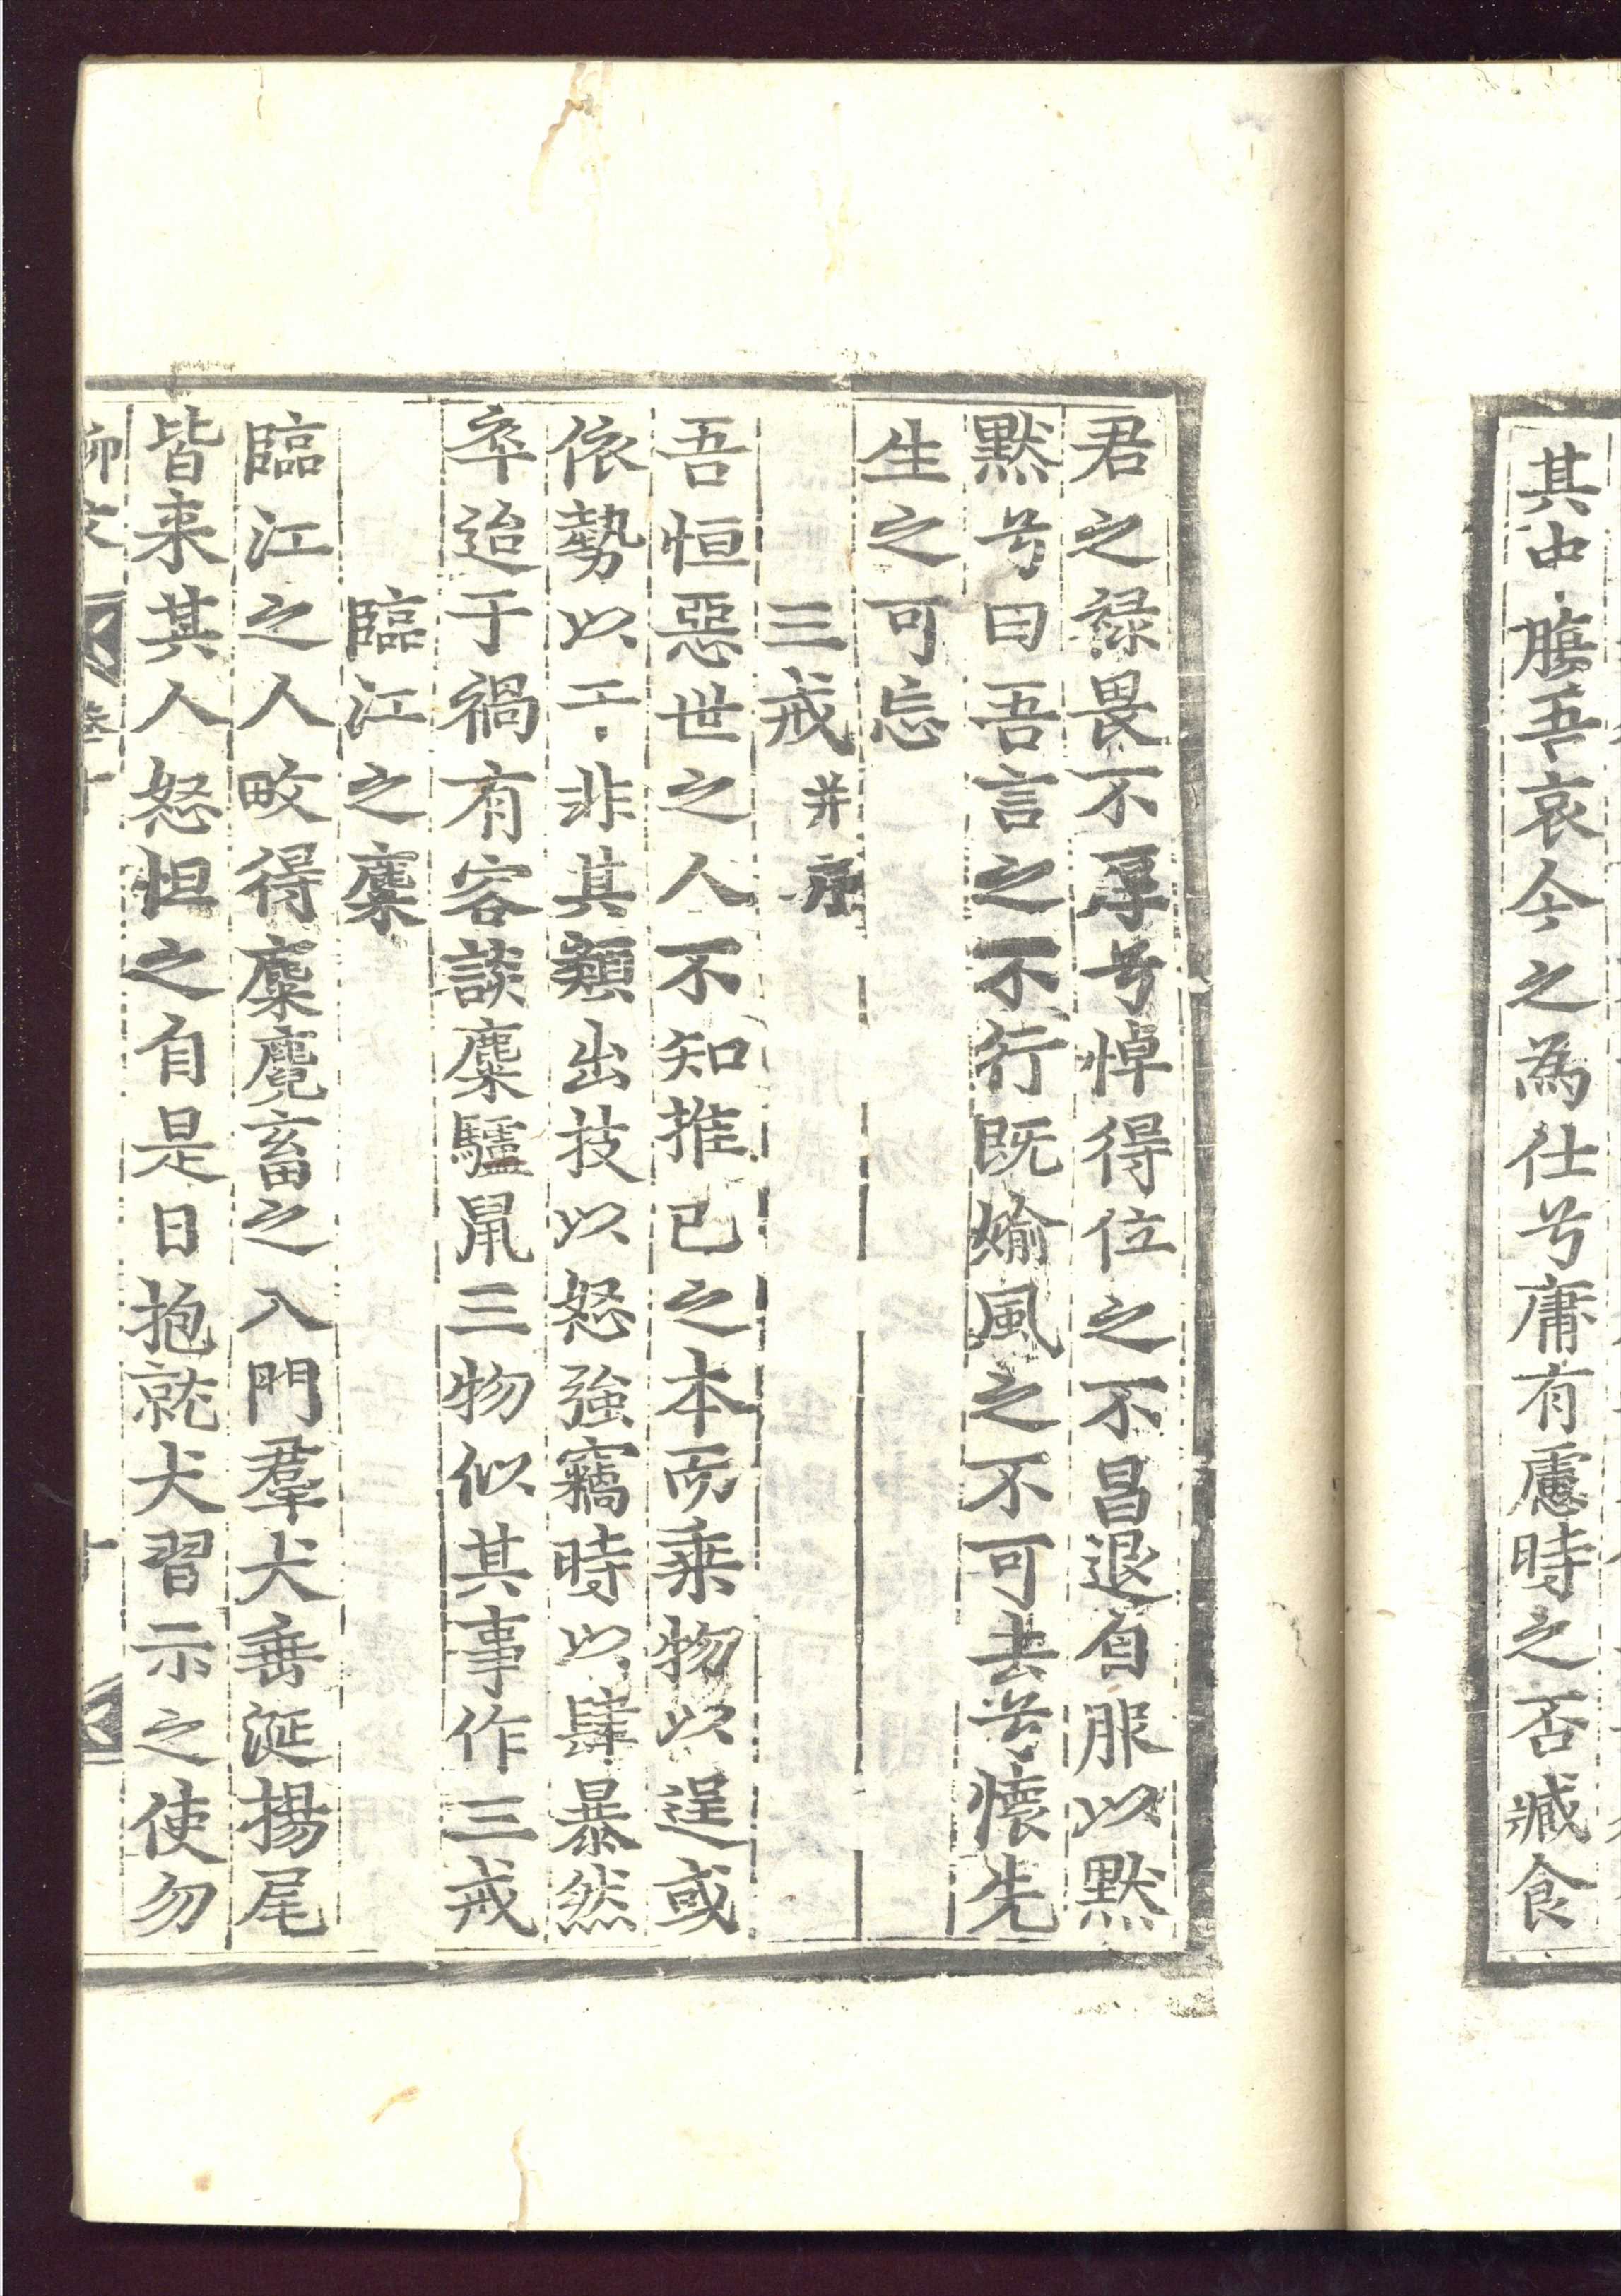 其中膓吾哀今之為仕兮庸有慮時之否臧食
君之禄畏不厚兮悼得位之不昌退自服以黙
黙兮曰吾言之不行既媮風之不可去兮懷先
生之可忘
三戒并序
吾恒惡世之人不知推己之本而乗物以逞或
依勢以干非其類出技以怒強竊時以肆暴然
卒迨于禍有客談麋驢鼠三物似其事作三戒
臨江之麋
臨江之人畋得麋麑畜之入門羣犬垂涎揚尾
皆来其人怒怛之自是日抱就犬習示之使勿